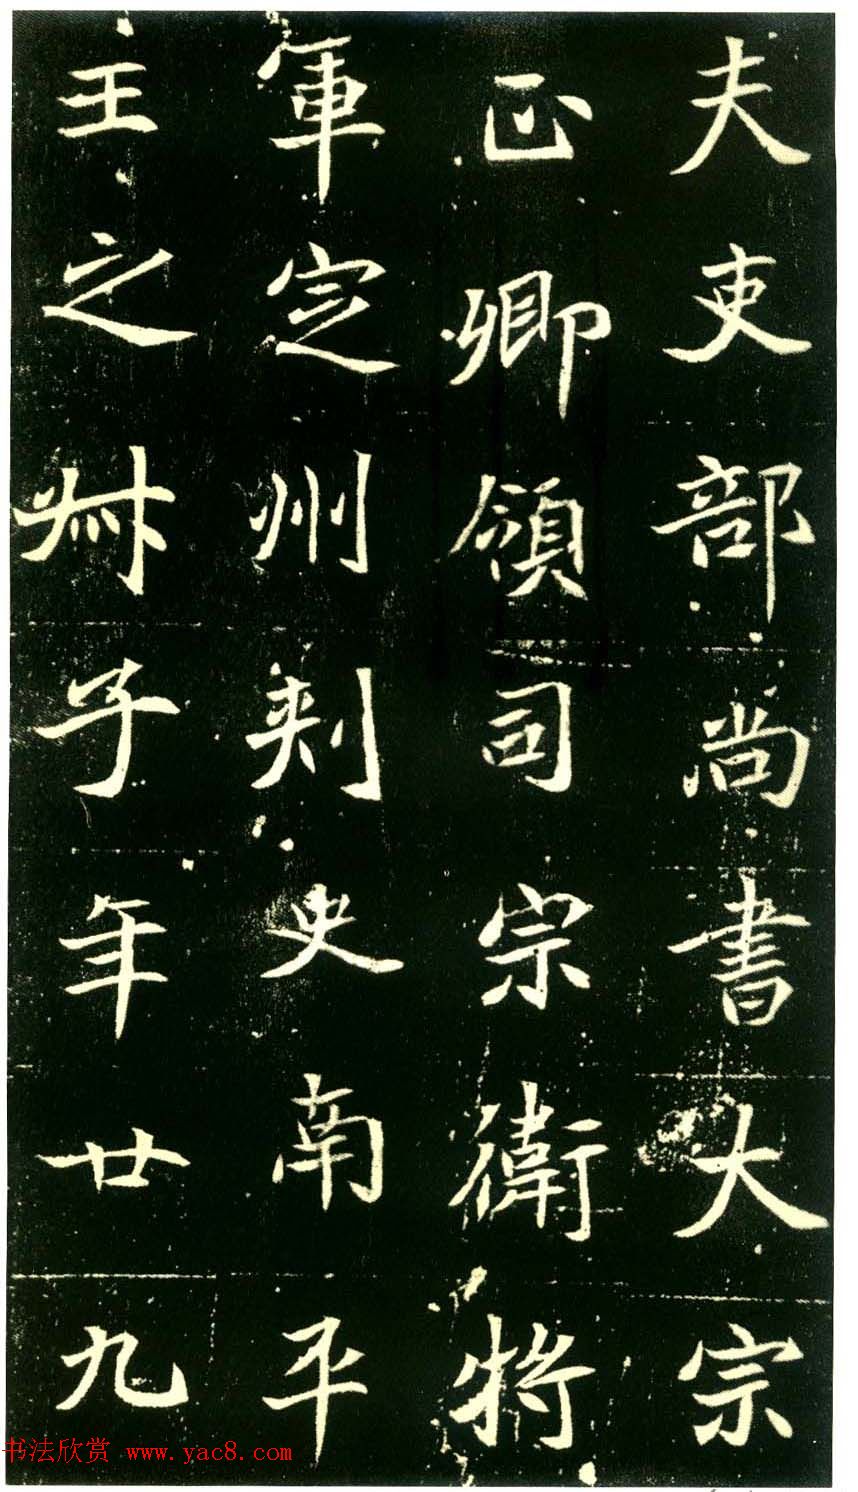 夫吏部尚書大宗
正卿領司宗衛將
軍定州刾史南平
王之叔子年廿九
书法欣赏 www.yac8.com